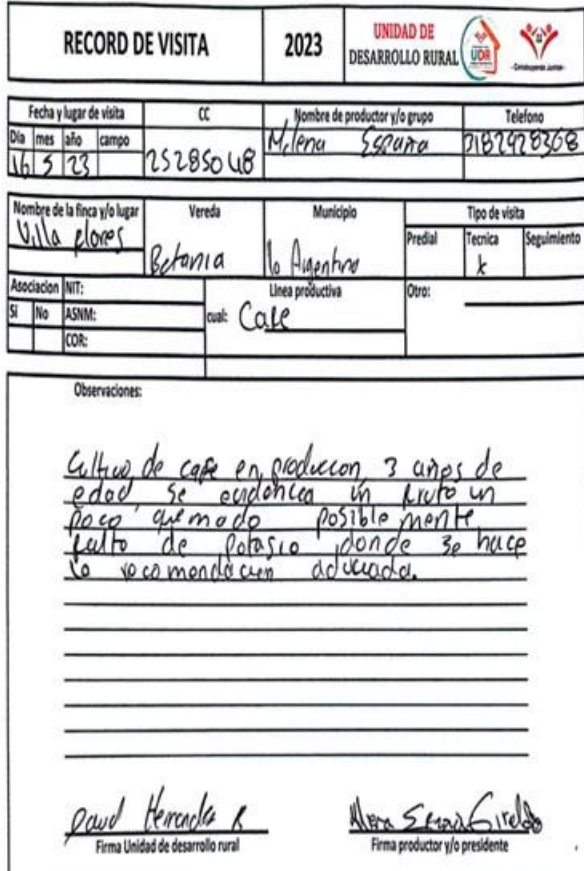 RECORD DE VISITA
2023
UNIDAD DE
DESARROLLO RURAL
UDR
-Construyendo Juntos-
Fecha y lugar de visita CC Nombre de productor y/o grupo Telefono
Día mes año campo
16 5 23 25285048 Milena España 3182928368
Nombre de la finca y/o lugar Vereda Municipio Tipo de visita
Predial Tecnica Seguimiento
Villa flores Betania la Argentina x
Asociacion NIT: Linea productiva Otro:
Si No ASNM: cual: Cafe
COR:
Observaciones:
Cultivo de cafe en produccon 3 años de
edad, se evidencia un fruto un
poco quemado posible mente
falto de potasio donde se hace
la recomendacion adecuada.
David Hernandez R
Firma Unidad de desarrollo rural
Firma productor y/o presidente